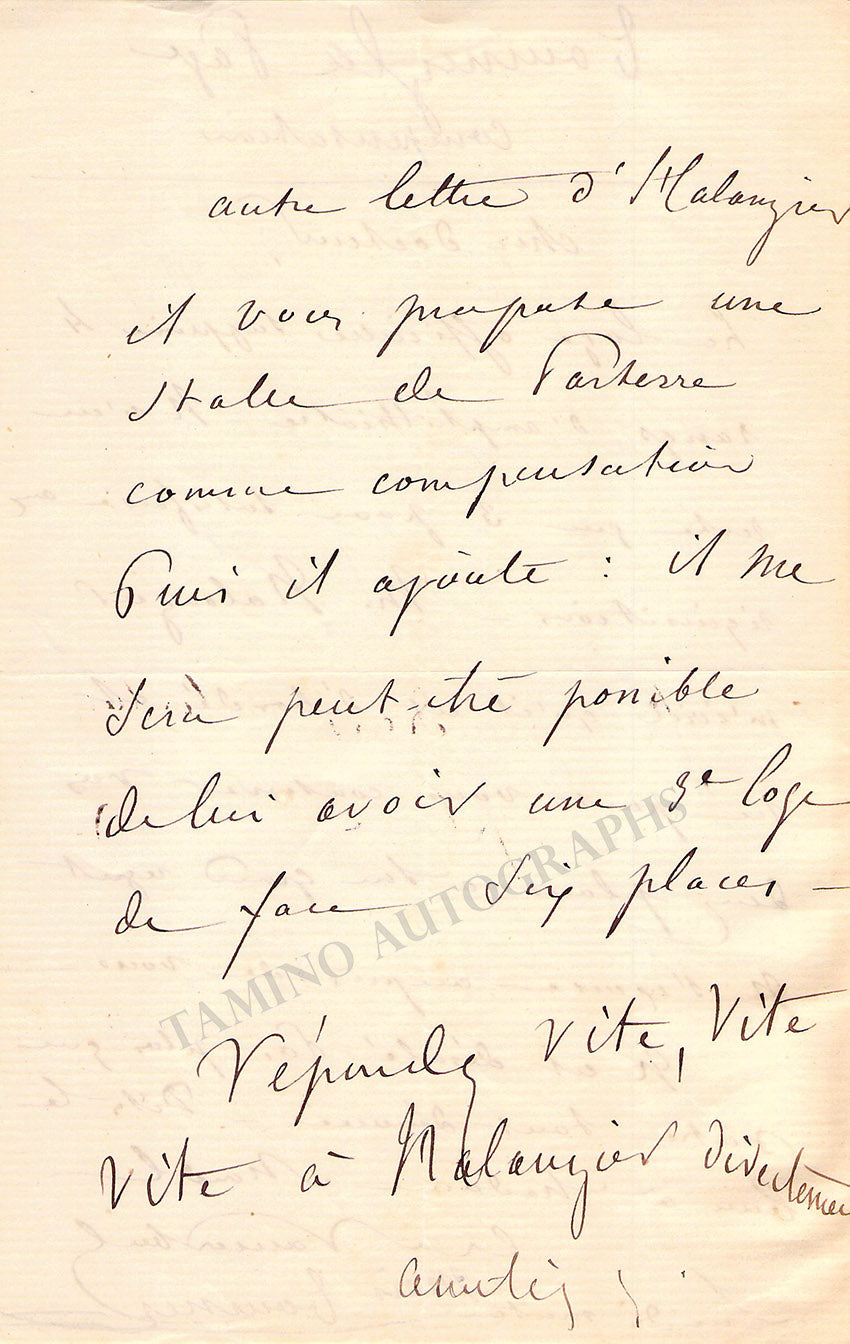 autre lettre d'Halanzier
il vous propose une
Stalle de Parterre
comme compensation
Puis il ajoute : il me
sera peut-être possible
de lui avoir une 3e loge
de face six places –
TAMINO AUTOGRAPHS
Répondez vite, vite
vite à Halanzier directement